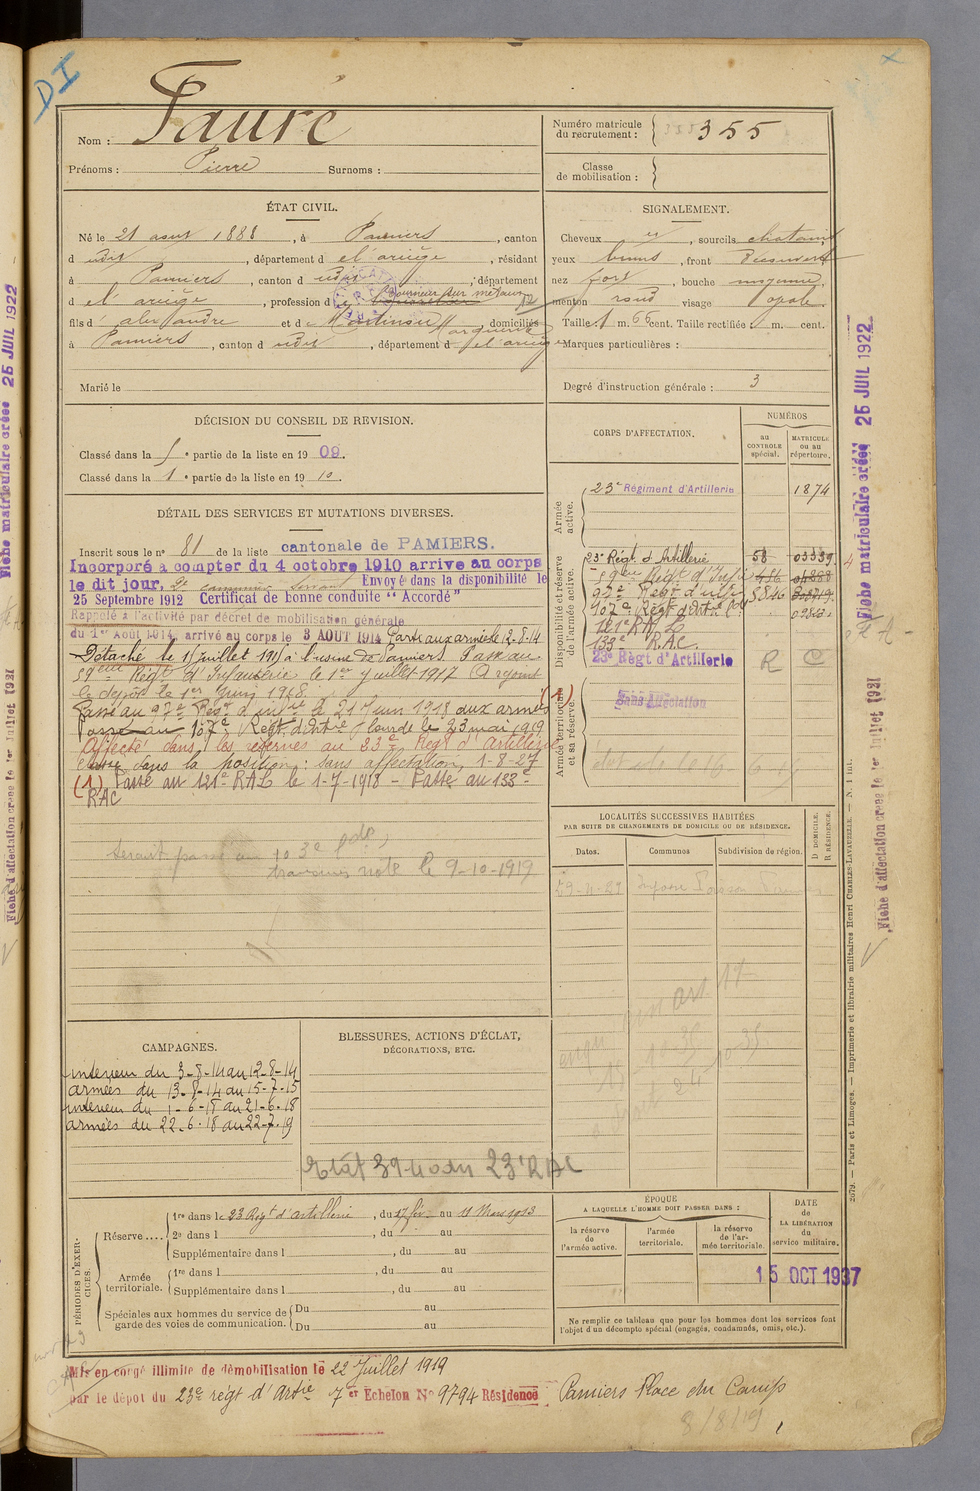 DI
Nom : Fauré
Prénoms : Pierre Surnoms :
Numéro matricule du recrutement : 355
Classe de mobilisation :
ÉTAT CIVIL.
Né le 21 aout 1888, à Pamiers, canton
d udit, département d e l'ariège, résidant
à Pamiers, canton d udit, département
d e l'ariège, profession d tourneur sur métaux
fils d' alexandre et de Marguerite domiciliés
à Pamiers, canton d udit, département d e l'ariège
Marié le
SIGNALEMENT.
Cheveux et, sourcils chatains
yeux bruns, front découvert
nez fort, bouche moyenne,
menton rond visage ovale.
Taille 1 m. 66 cent. Taille rectifiée : m. cent.
Marques particulières :
Degré d'instruction générale : 3
DÉCISION DU CONSEIL DE REVISION.
Classé dans la 5e partie de la liste en 1909.
Classé dans la 1e partie de la liste en 1910.
DÉTAIL DES SERVICES ET MUTATIONS DIVERSES.
Inscrit sous le no 81 de la liste cantonale de PAMIERS.
Incorporé à compter du 4 octobre 1910 arrive au corps
le dit jour, 2e canonnier servant Envoyé dans la disponibilité le
25 Septembre 1912 Certificat de bonne conduite "Accordé"
Rappelé à l'activité par décret de mobilisation générale
du 1er Août 1914, arrivé au corps le 3 AOUT 1914 Parti aux armées le 12-8-14
Détaché le 15 juillet 1915 à l'usine de Pamiers. Passé au
59eme Régt d'Infanterie le 1er juillet 1917 Rejoint
le dépôt le 1er Juin 1918.
Passé au 92e Régt d'infie le 21 Juin 1918 aux armées (1)
Passé au 107e Régt d'artie lourde le 23 mai 1919
Affecté dans les réserves au 23e Régt d'Artillerie
Classé dans la position : sans affectation, 1-8-27
(1) Passé au 121e RAL le 1-7-1918 - Passé au 133e
RAC
Serait passé au 103e
note le 9-10-1919
CORPS D'AFFECTATION.
NUMÉROS
au CONTROLE spécial.
MATRICULE ou au répertoire.
Armée active.
23e Régiment d'Artillerie 1874
Disponibilité et réserve de l'armée active.
23e Régt d'Artillerie 58 03339
59eme Régt d'Infie 456
92e Régt d'infie 5816
107e Régt d'Artie
121e RAL
133e RAC.
23e Régt d'Artillerie R
Armée territoriale et sa réserve.
Sans Affectation
LOCALITÉS SUCCESSIVES HABITÉES
PAR SUITE DE CHANGEMENTS DE DOMICILE OU DE RÉSIDENCE.
Dates. Communes Subdivision de région. D DOMICILE. R RÉSIDENCE.
CAMPAGNES.
intérieur du 3-8-14 au 12-8-14
armées du 13-8-14 au 15-7-15
intérieur du 1-6-18 au 21-6-18
armées du 22-6-18 au 22-7-19
BLESSURES, ACTIONS D'ÉCLAT,
DÉCORATIONS, ETC.
PÉRIODES D'EXERCICES.
Réserve .... 1re dans le 23 Régt d'artillerie, du 17 fév. au 11 Mars 1913
2e dans l , du au
Supplémentaire dans l , du au
Armée territoriale. 1re dans l , du au
Supplémentaire dans l , du au
Spéciales aux hommes du service de garde des voies de communication. Du au
Du au
ÉPOQUE
A LAQUELLE L'HOMME DOIT PASSER DANS :
la réserve de l'armée active.
l'armée territoriale.
la réserve de l'armée territoriale.
DATE de LA LIBÉRATION du service militaire.
15 OCT 1937
Ne remplir ce tableau que pour les hommes dont les services font
l'objet d'un décompte spécial (engagés, condamnés, omis, etc.).
Mis en congé illimité de démobilisation le 22 Juillet 1919
par le dépot du 23e régt d'Artie 7er Echelon No 9794 Résidence Pamiers Place du Camp
8/8/19
Fiche matriculaire créée 25 JUIL 1922
Fiche d'affectation créée le 1er juillet 1921
2679. — Paris et Limoges. — Imprimerie et librairie militaires Henri CHARLES-LAVAUZELLE. — N. 1 int.
Fiche matriculaire créée 25 JUIL 1922
Fiche d'affectation créée le 1er juillet 1921